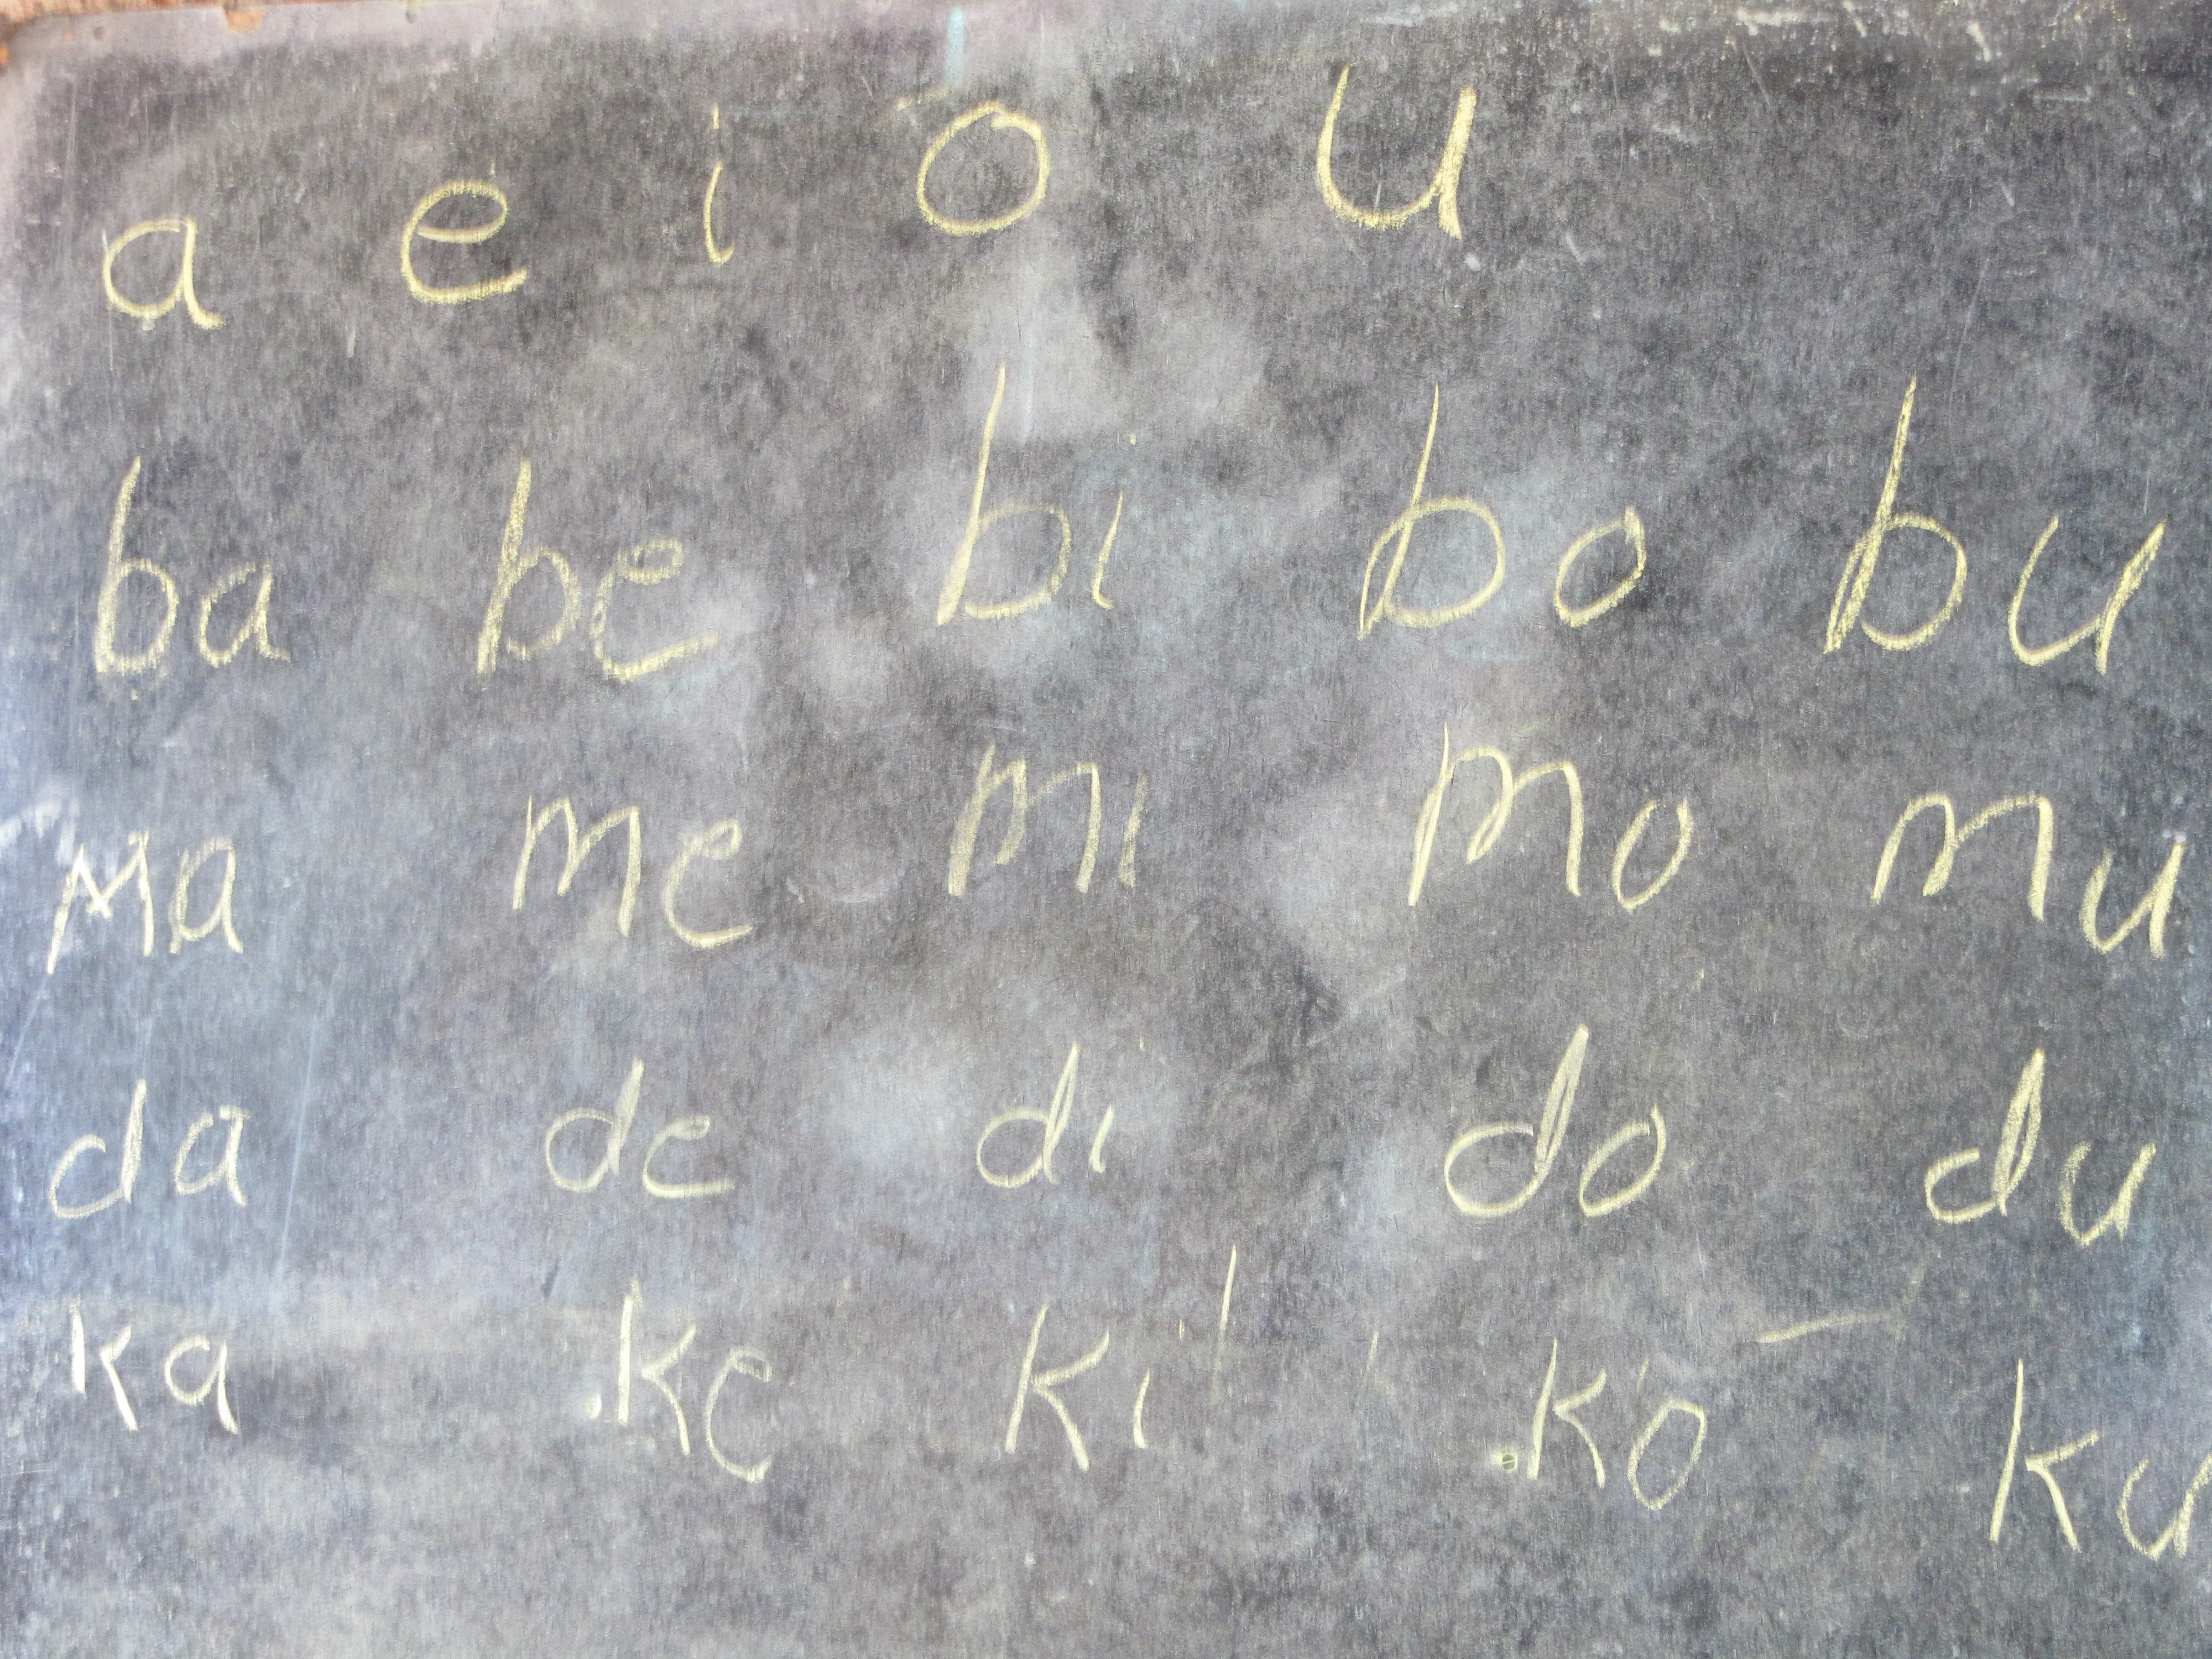 a e i o u
ba be bi bo bu
ma me mi mo mu
da de di do du
ka ke ki ko ku